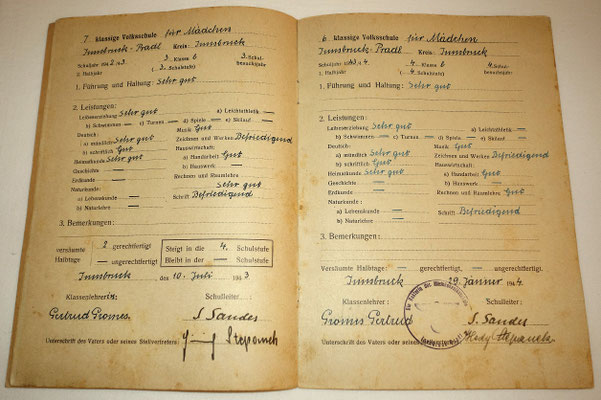 7 klassige Volksschule für Mädchen
Innsbruck-Pradl Kreis: Innsbruck
Schuljahr 1942/43 3. Klasse b 3. Schul-
II. Halbjahr ( 3. Schulstufe) besuchsjahr
1. Führung und Haltung: Sehr gut
2. Leistungen:
Leibeserziehung Sehr gut a) Leichtathletik: —
b) Schwimmen — c) Turnen — d) Spiele — e) Skilauf —
Deutsch: Musik Gut
a) mündlich Sehr gut Zeichnen und Werken Befriedigend
b) schriftlich Gut Hauswirtschaft:
Heimatkunde Sehr gut a) Handarbeit Gut
Geschichte — b) Hauswerk: —
Erdkunde — Rechnen und Raumlehre
Naturkunde: Sehr gut
a) Lebenskunde — Schrift Befriedigend
b) Naturlehre —
3. Bemerkungen:
versäumte 2 gerechtfertigt Steigt in die 4. Schulstufe
Halbtage: — ungerechtfertigt Bleibt in der — Schulstufe
Innsbruck, den 10. Juli 1943
Klassenlehrerin: Schulleiter:
Gertrud Gromes S. Sandes
Stepanek
Unterschrift des Vaters oder seines Stellvertreters:
6 klassige Volksschule für Mädchen
Innsbruck-Pradl Kreis: Innsbruck
Schuljahr 1943/4 4 Klasse b 4. Schul-
I. Halbjahr ( 4 Schulstufe) besuchsjahr
1. Führung und Haltung: Sehr gut
2. Leistungen:
Leibeserziehung Sehr gut a) Leichtathletik: —
b) Schwimmen — c) Turnen — d) Spiele — e) Skilauf —
Deutsch: Musik Gut
a) mündlich Sehr gut Zeichnen und Werken Befriedigend
b) schriftlich Gut Hauswirtschaft:
Heimatkunde Sehr gut a) Handarbeit Gut
Geschichte — b) Hauswerk: —
Erdkunde — Rechnen und Raumlehre
Naturkunde: Gut
a) Lebenskunde — Schrift Befriedigend
b) Naturlehre —
3. Bemerkungen:
Versäumte Halbtage: — gerechtfertigt, — ungerechtfertigt
Innsbruck, den 29. Jänner 1944
Klassenlehrer: Schulleiter:
Gromes Gertrud S. Sandes
Hedy Stepanek
Unterschrift des Vaters oder seines Stellvertreters: